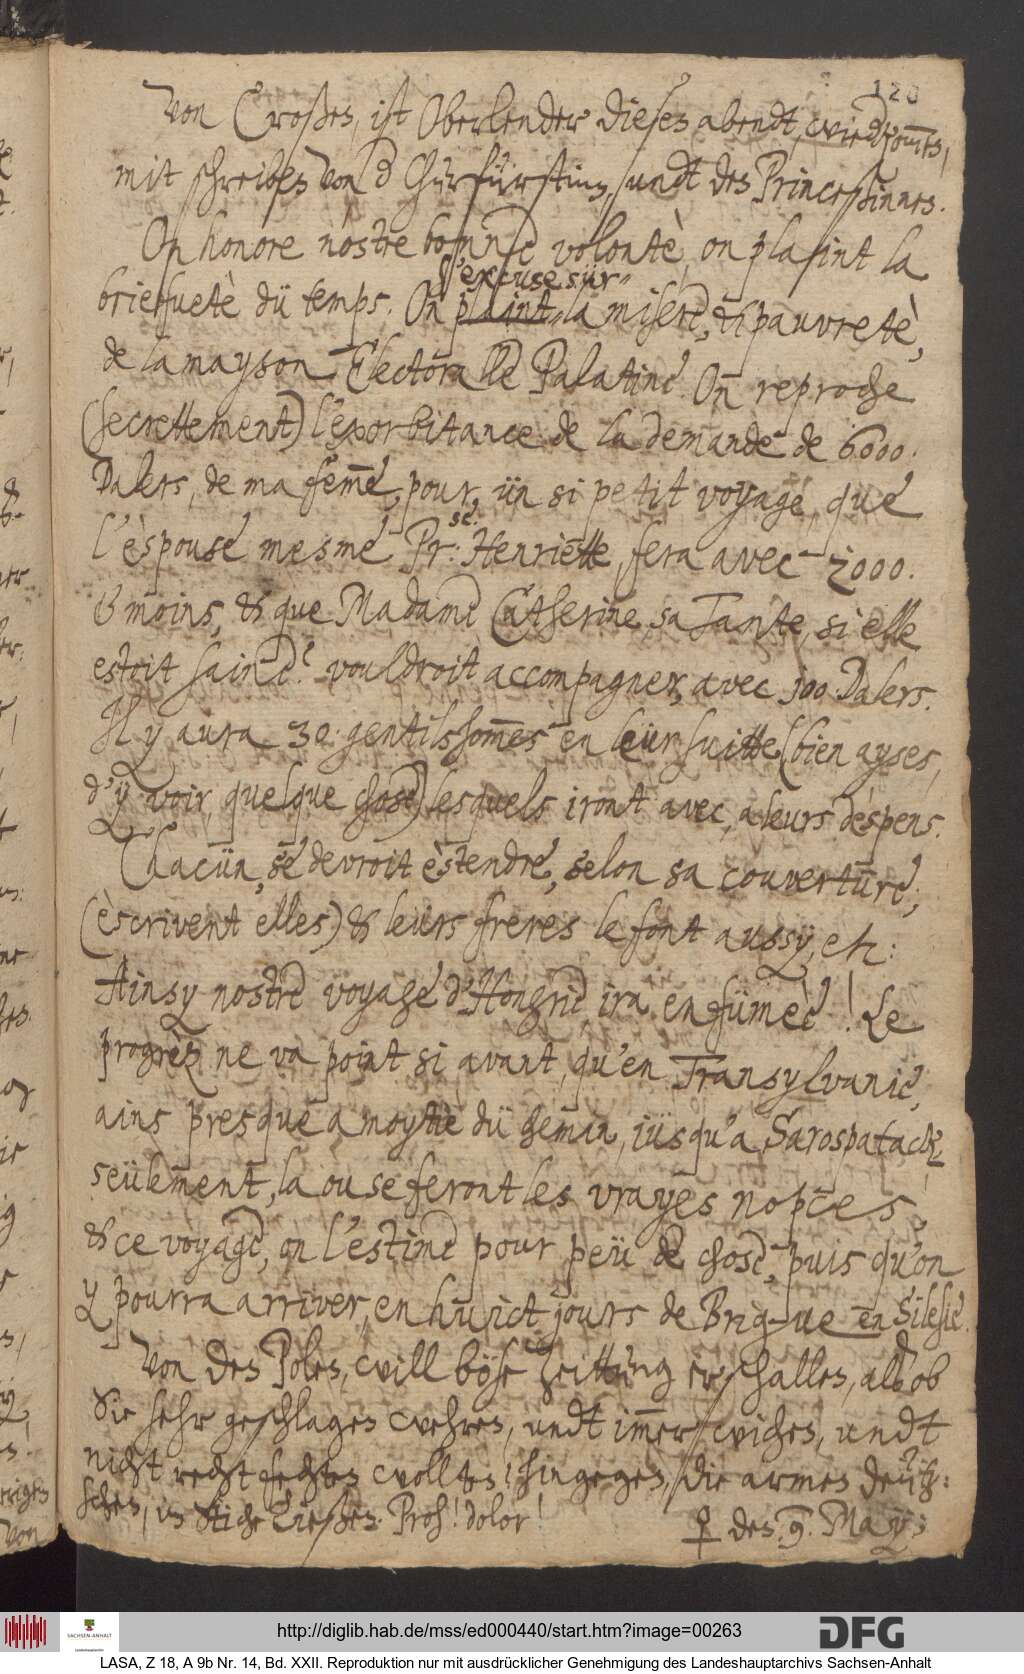 120
Von Croßen, ist Oberlender dieses abendt, wiedkom̄en,
mit schreiben von d Churfürstin, undt den Princeßinnen.
On honore nostre bonne volontè, on plaint la
briefuetè dü temps. On plaint la misere, & pauvretè,
s'excuse sür
de la mayson Electoralle Palatine. On reproche
(secrettement) l'exorbitance de la demande de 6000.
Dalers, de ma fem̄e, pour ün si petit voyage, que
l'èspouse mesme Pr:se: Henriette, fera avec 2000.
& moins, & que Madame Catherine, sa Tante, si elle
estoit saine vouldroit accompagner, avec 300 Dalers.
Il y aura 30. gentilshom̄es en leur suitte (bien ayses,
d'y avoir, quelque chose) lesquels iront avec, a leurs despens.
Chacün, se devroit èstendre, selon sa couverture,
(èscrivent elles,) & leürs freres le font aussy, etc:
Ainsy nostre voyage d'Hongrie, ira en fümèe! Le
progrèz ne va point si avant, qu'en Transylvanie,
ains presque a moytiè dü chemin, jüsqu'a Sarospatack,
seülement, la ou se feront les vrayes nopces,
& ce voyage, on l'estime pour peü de chose, puis qu'on
y pourra arriver, en huict jours de Brig-ue en Silesie.
Von den Polen, will böse Zeittung erschallen, alß ob
Sie sehr geschlagen wehren, undt im̄er wichen, undt
nicht recht fechten wollten, hingegen, die armen deütz:
schen, in Stiche ließen. Proh! dolor!
♀ den 9. May:
von
http://diglib.hab.de/mss/ed000440/start.htm?image=00263
SACHSEN-ANHALT
DFG
LASA, Z 18, A 9b Nr. 14, Bd. XXII. Reproduktion nur mit ausdrücklicher Genehmigung des Landeshauptarchivs Sachsen-Anhalt